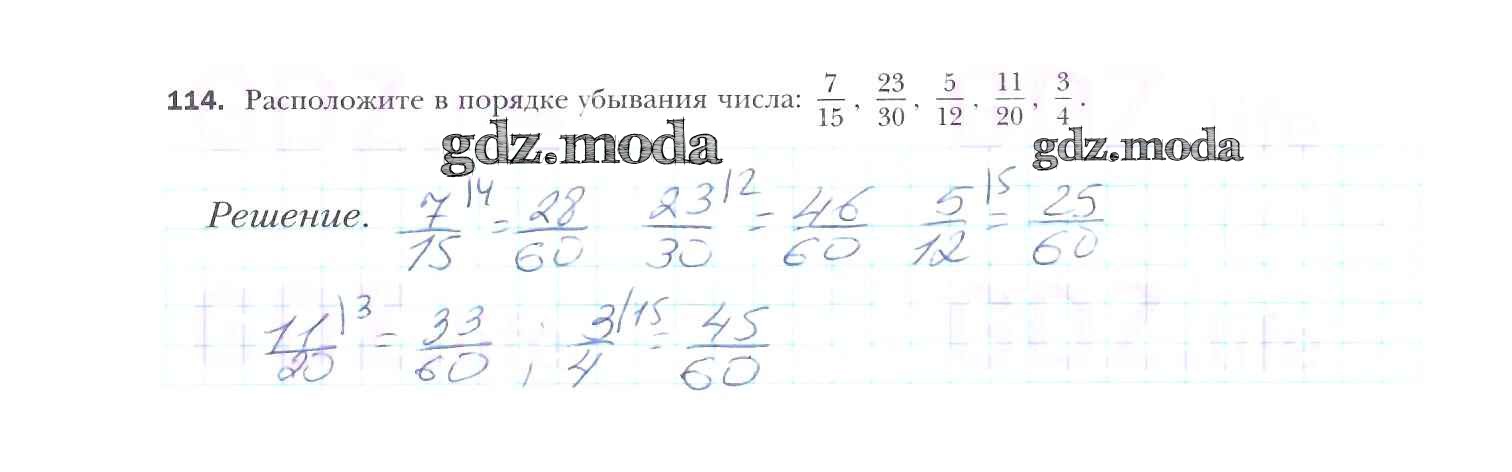 114. Расположите в порядке убывания числа: 7/15, 23/30, 5/12, 11/20, 3/4.
gdz.moda gdz.moda
Решение. 7/15 |4 = 28/60 23/30 |2 = 46/60 5/12 |5 = 25/60
11/20 |3 = 33/60 ; 3/4 |15 = 45/60